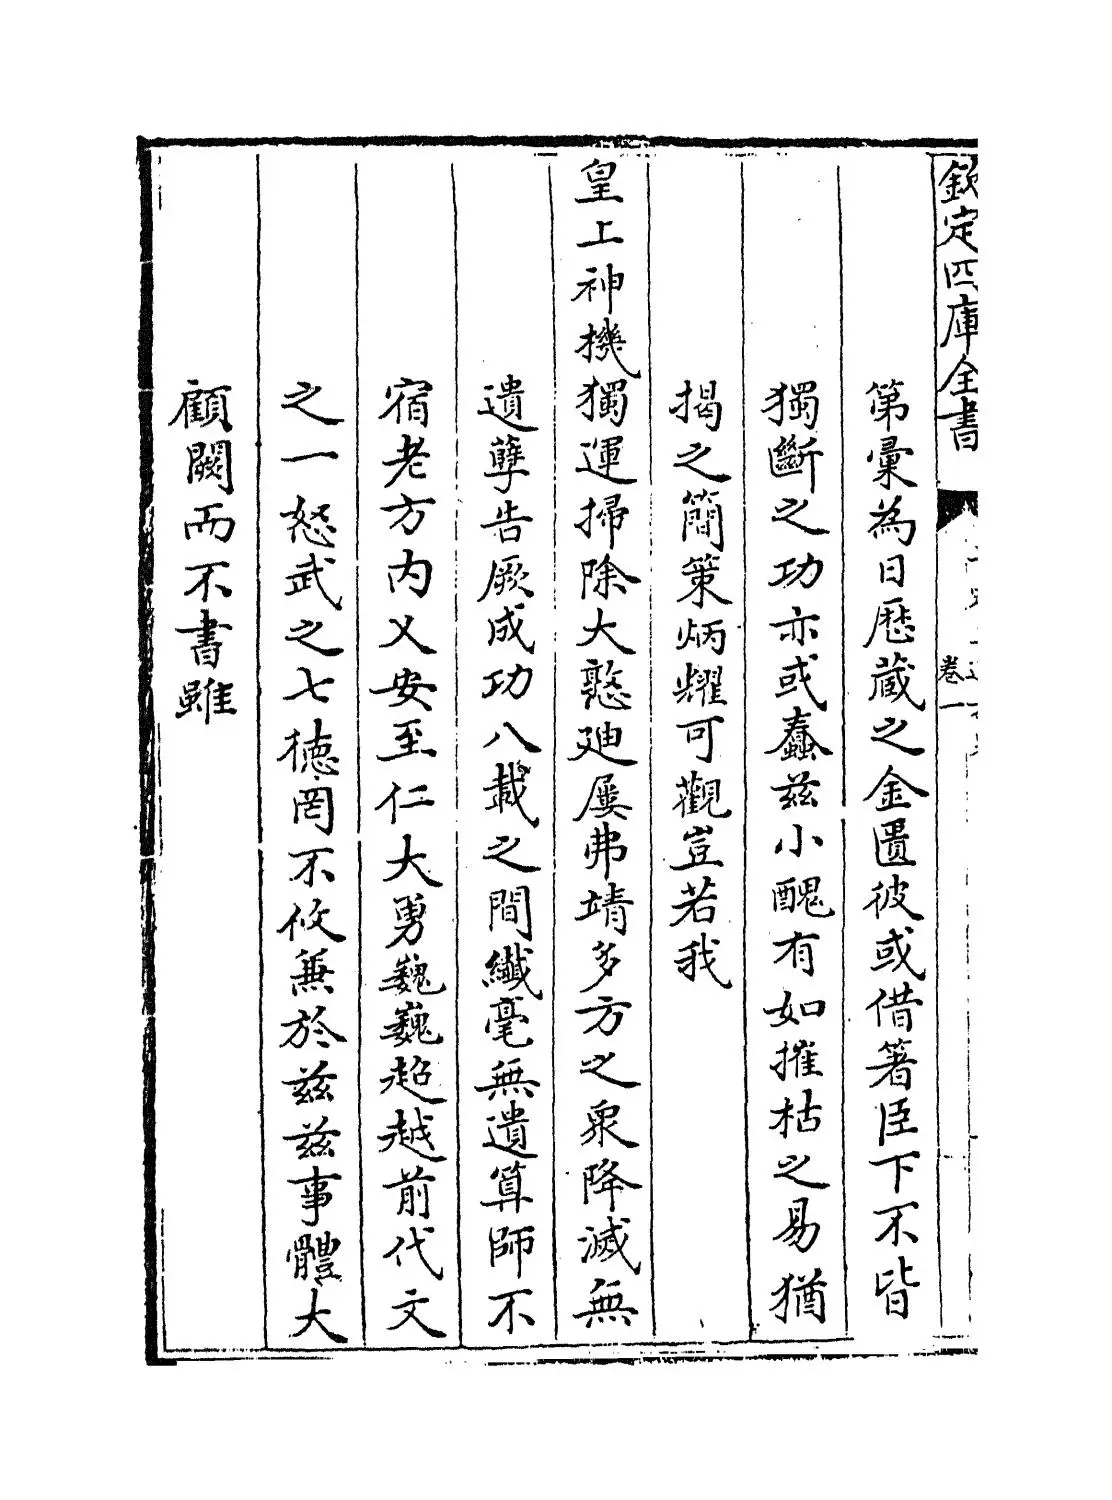 欽定四庫全書
卷一
第彚為日歴藏之金匱彼或借箸臣下不皆
獨斷之功亦或蠢兹小醜有如摧枯之易猶
揭之簡策炳耀可觀豈若我
皇上神機獨運掃除大憝廸屢弗靖多方之衆降滅無
遺孽告厥成功八載之間纖毫無遺算師不
宿老方内乂安至仁大勇巍巍超越前代文
之一怒武之七徳罔不攸兼於兹兹事體大
顧闕而不書雖